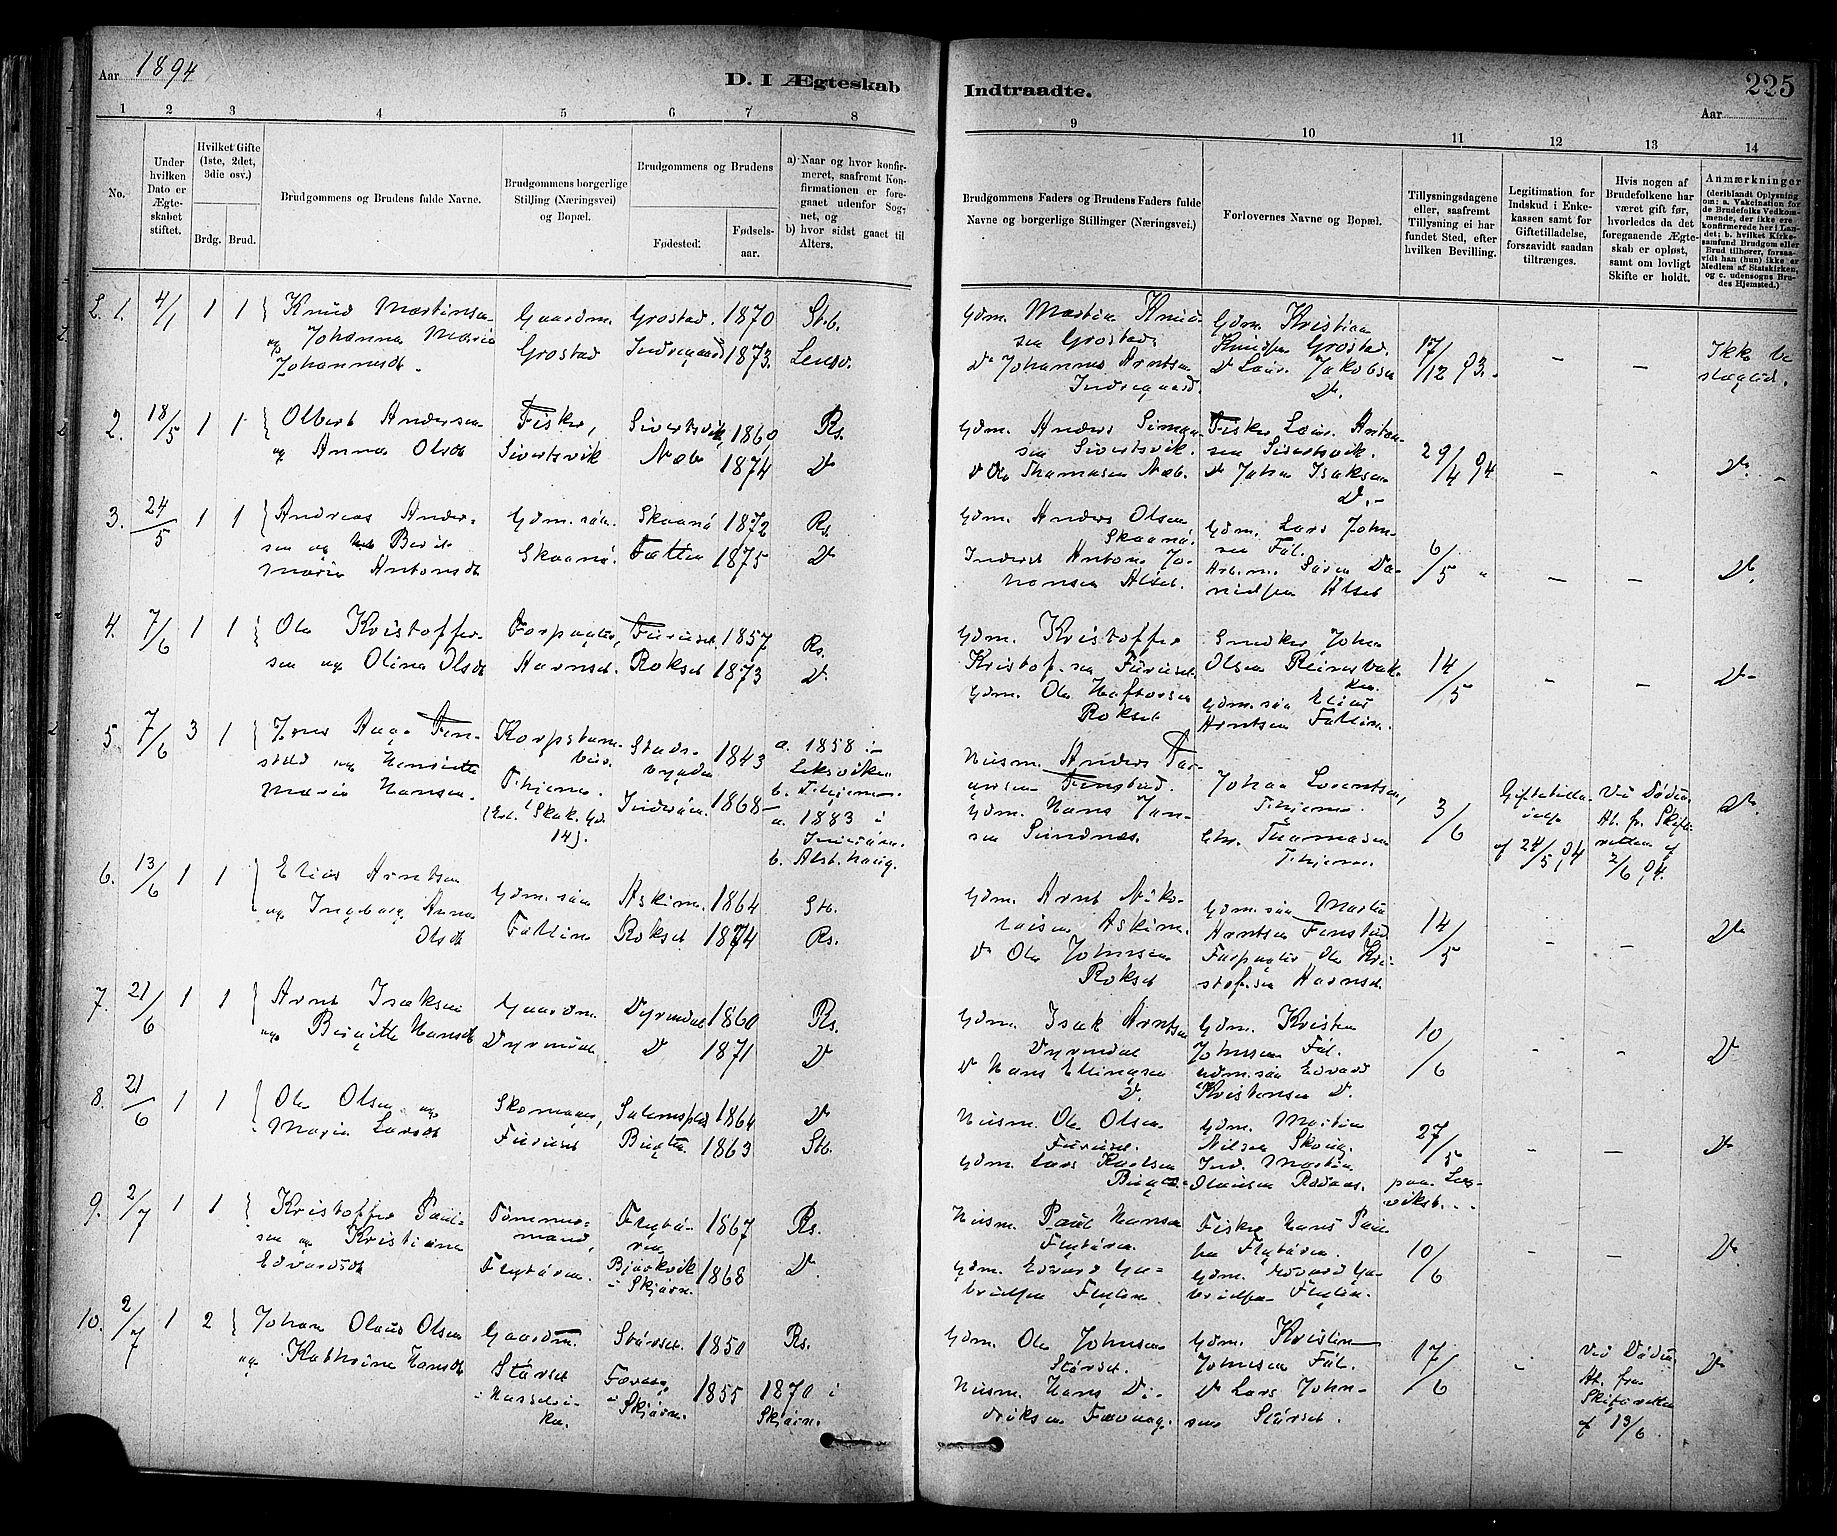 Aar 1894
D. I Ægteskab
Indtraadte.
225
Aar
1 2 3 4 5 6 7 8
9 10 11 12 13 14
No.
Under hvilken Dato er Ægteskabet stiftet.
Hvilket Gifte (1ste, 2det, 3die osv.)
Brdg. Brud.
Brudgommens og Brudens fulde Navne.
Brudgommens borgerlige Stilling (Næringsvei) og Bopæl.
Brudgommens og Brudens
Fødested.
Fødselsaar.
a) Naar og hvor konfirmeret, saafremt Konfirmationen er foregaaet udenfor Sognet, og
b) hvor sidst gaaet til Alters.
Brudgommens Faders og Brudens Faders fulde Navne og borgerlige Stillinger (Næringsvei.)
Forlovernes Navne og Bopæl.
Tillysningsdagene eller, saafremt Tillysning ei har fundet Sted, efter hvilken Bevilling.
Legitimation for Indskud i Enkekassen samt for Giftetilladelse, forsaavidt saadan tiltrænges.
Hvis nogen af Brudefolkene har været gift før, hvorledes da det foregaaende Ægteskab er opløst, samt om lovligt Skifte er holdt.
Anmærkninger (deriblandt Oplysning om: a. Vakcination for de Brudefolks Vedkommende, der ikke ere konfirmerede her i Landet; b. hvilket Kirkesamfund Brudgom eller Brud tilhører, forsaavidt han (hun) ikke er Medlem af Statskirken, og c. udensogns Brudes Hjemsted.)
1. 4/1 1 1 Knud Martinsen og Johanna Maria Johannesdt.
Gaardm. Grostad
Grostad. 1870 Stb.
Indregaard 1873. Lensv.
Gdm. Martin Knudsen Grostad.
Do Johannes Arntsen Indregaard.
Gdm. Kristian Knudsen Grostad.
Do Laur. Jakobsen Do.
17/12 93. - - Ikke beslægtet.
2. 18/5 1 1 Olbert Andersen og Anna Olsdt
Fisker, Sivertsvik
Sivertsvik 1860, Rs.
Næb 1874 Do
Gdm. Anders Simonsen Sivertsvik.
Do Ole Thomasen Næb.
Fisker Laur. Antonsen Sivertsvik.
Do Johan Isaksen Do.-
29/4 94 - - Do. -
3. 24/5 1 1 Andreas Andersen og Berit Maria Antonsdt
Gdm.søn. Skaanö.
Skaanö 1872 Rs.
Fætten 1875 Do
Gdm. Anders Olsen, Skaanö.
Inderst Anton Johansen Alset.
Gdm. Lars Johnsen Föl.
Arb.m. Sören Danielsen Alset
6/5 " - - Do.
4. 7/6 1 1 Ole Kristoffersen og Olina Olsdt
Forpagter, Harnset.
Furuset. 1857 Rs.
Rokset 1873 Do
Gdm. Kristoffer Kristofersen Furuset.
Gdm. Ole Haftorsen Rokset
Snedker Johan Olsen Reinsbakken.
Gdm.søn Elias Arntsen Fallin.
14/5 - - Do-
5. 7/6 3 1 Jens Aage Finstad og Henriette Maria Hansen.
Korpstambur. Thjemo.
Stadsbygden 1843
Inderöen. 1868-
a. 1858 i Leksviken.
b. Thjemo.
a. 1883 i Inderöen.
b. Alsthaug.
Husm. Anders Finstad.
Gdm. Hans Jansen Sundnes.
Johan Lorentsen, Thjemo.
Chr. Thomasen Thjemo.
3/6
Giftetilladelse af 24/5 94
Ved Döden. At. fr. Skifteretten af 2/6 94.
Do.
6. 13/6 1 1 Elias Arntsen og Ingeborg Anna Olsdt
Gdm.søn Fallin
Askim. 1864 Stb.
Rokset 1874 Rs.
Gdm. Arnt Nikolaisen Askim.
Do Ole Johnsen Rokset
Gdm.søn Martin Arntsen Finstad
Forpagter Ole Kristofersen Harnset.
14/5 - - Do
7. 21/6 1 1 Arnt Isaksen og Birgitte Hansdt
Gaardm. Dyrendal.
Dyrendal 1860 Rs.
Do 1871 Do
Gdm. Isak Arntsen Dyrendal
Do Hans Ellingsen Do.
Gdm. Kristen Johnsen Föl.
Gdm.søn Edvard Kristensen Do.
10/6 - - Do
8. 21/6 1 1 Ole Olsen og Maria Larsdt
Skomager, Furuset
Salemsplads 1864 Do
Bugten 1863 Stb.
Husm. Ole Olsen Furuset.
Gdm. Lars Karlsen Bugten.
Gdm. Martin Nilsen Skoug.
Ind. Martin Olausen Rødaas.
27/5 paa Leksvikst. - - Do
9. 2/7 1 1 Kristoffer Paulsen og Kristiane Edvardsdt
Tömmermand, Flytören.
Flytören 1867 Rs.
Bjørkvik i Skjörn. 1868 Do.
Husm. Paul Hansen Flytören.
Gdm. Edvard Gabrielsen Flytin.
Fisker Hans Paulsen Flytören.
Gdm. Edvard Gabrielsen Flytin.
10/6 - - Do
10. 2/7 1 2 Johan Olaus Olsen og Kathrine Hansdt
Gaardm. Störset i Hasselviken.
Störset. 1850 Rs.
Færaas i Skjörn. 1855 1870 i Skjörn.
Gdm. Ole Johnsen Störset.
Husm. Hans Diriksen
Gdm. Kristen Johnsen Föl.
Do Lars Johnsen Störset.
17/6 - Ved Döden. At. fra Skifteretten af 13/6. Do